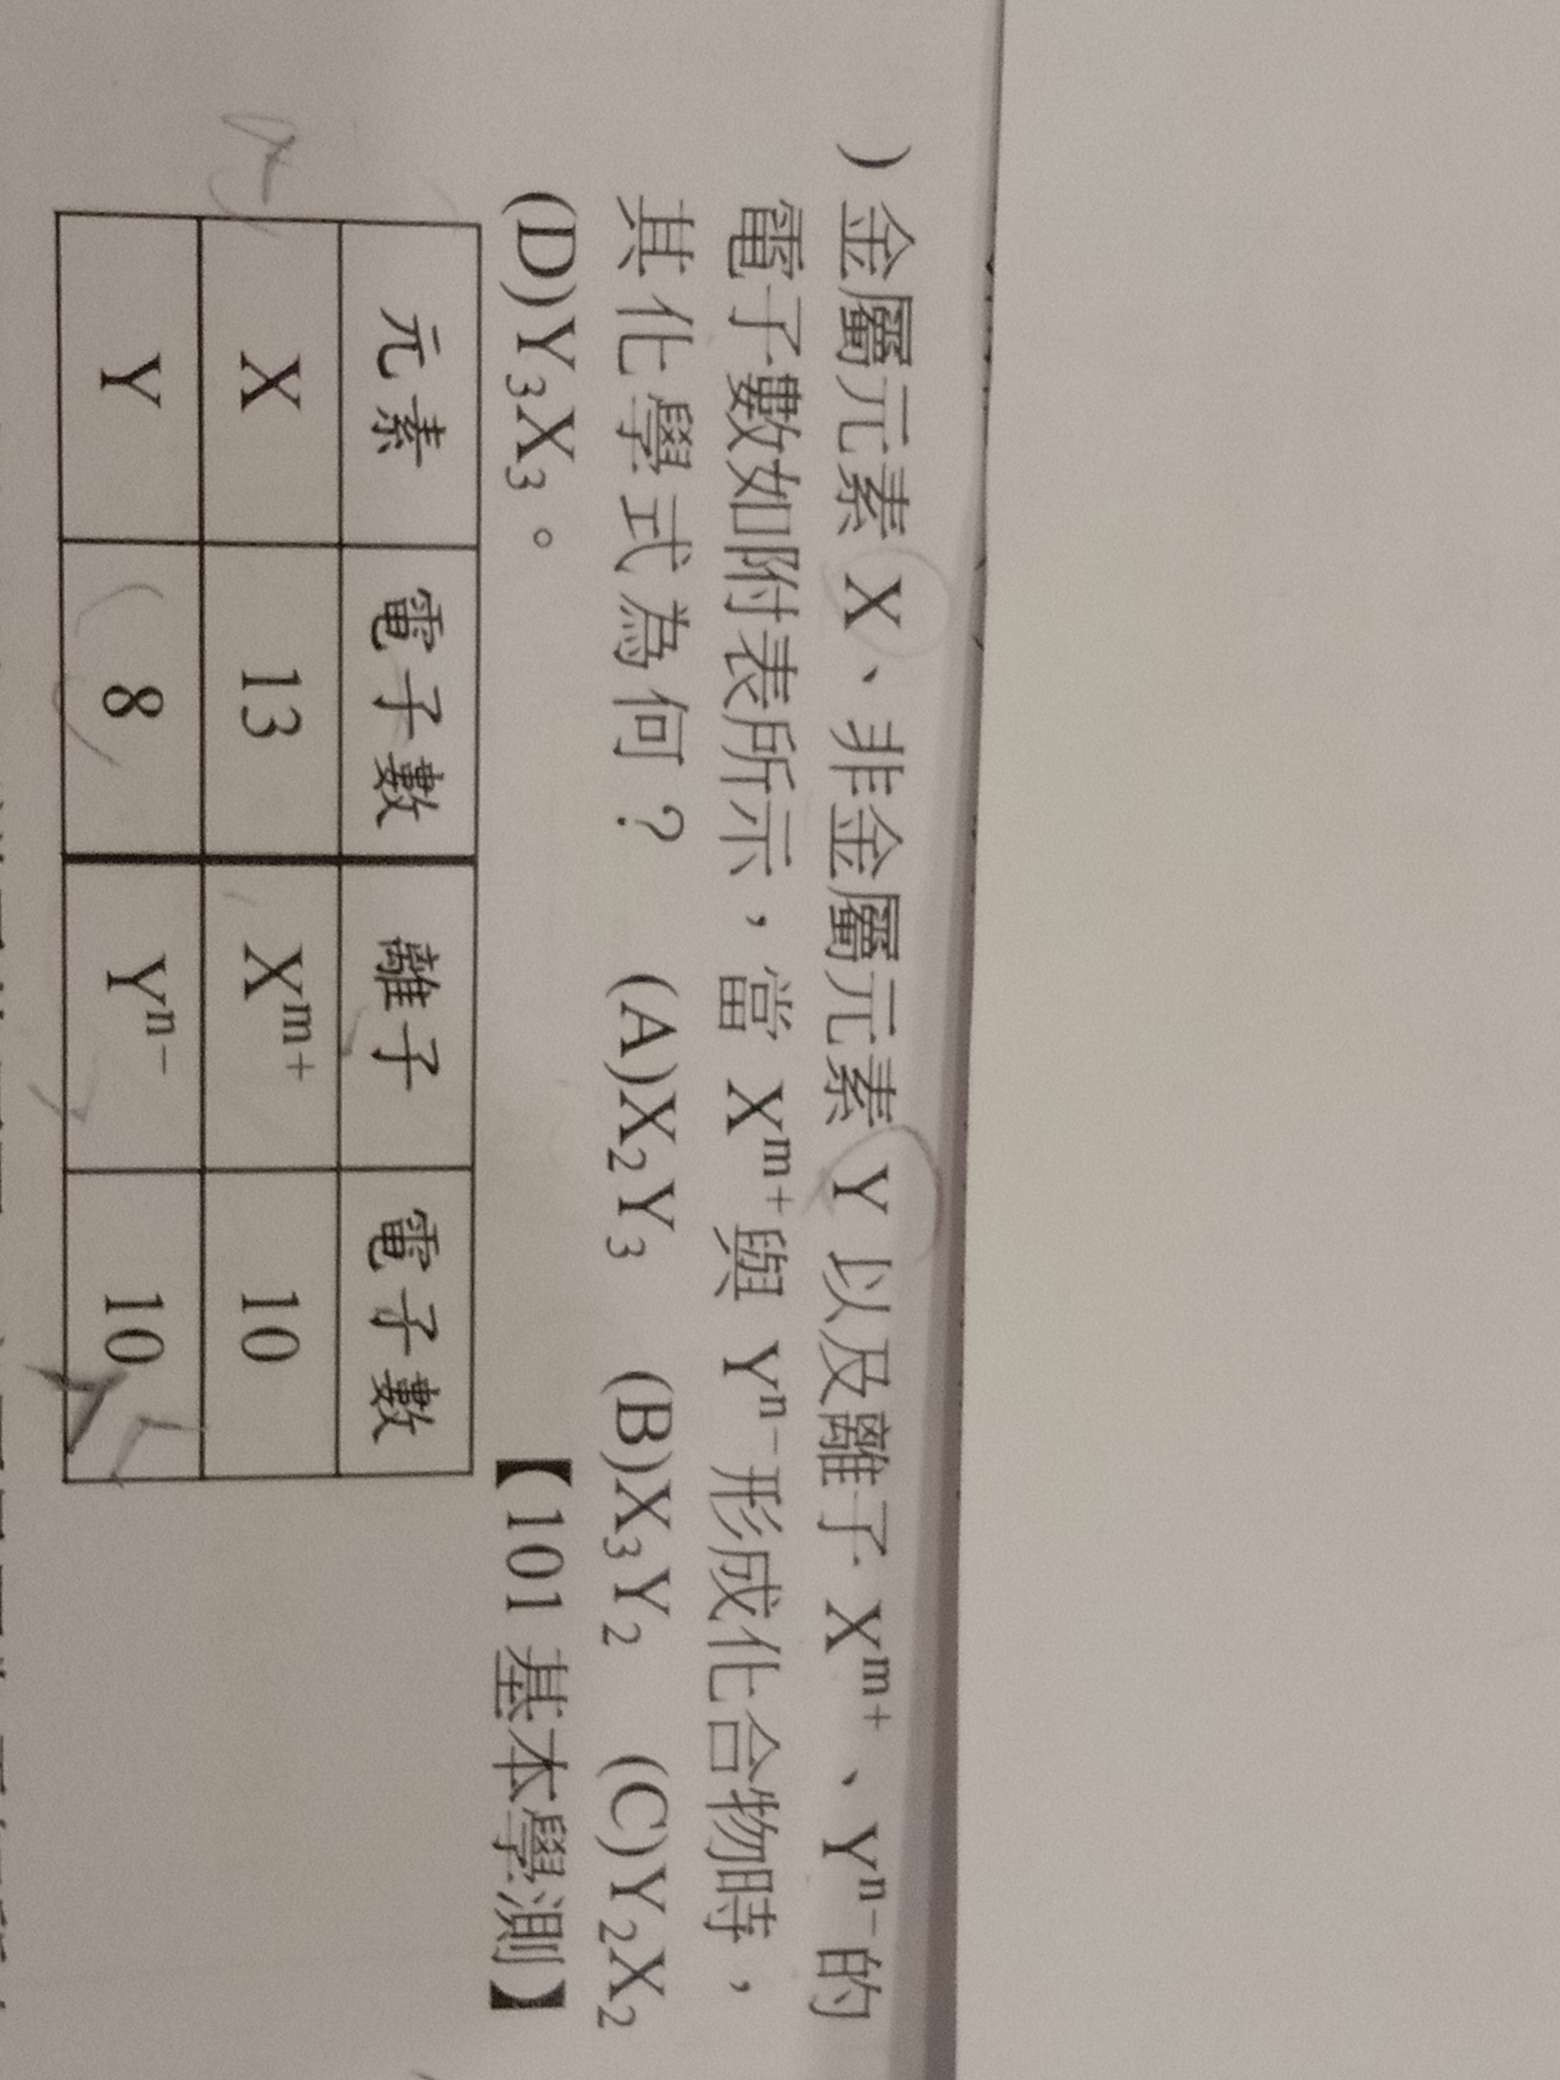 ) 金屬元素 X、非金屬元素 Y 以及離子 Xᵐ⁺、Yⁿ⁻的
電子數如附表所示，當 Xᵐ⁺與 Yⁿ⁻形成化合物時，
其化學式為何？ (A)X₂Y₃ (B)X₃Y₂ (C)Y₂X₂
(D)Y₃X₃。 【101 基本學測】
元素 電子數 離子 電子數
X 13 Xᵐ⁺ 10
Y 8 Yⁿ⁻ 10